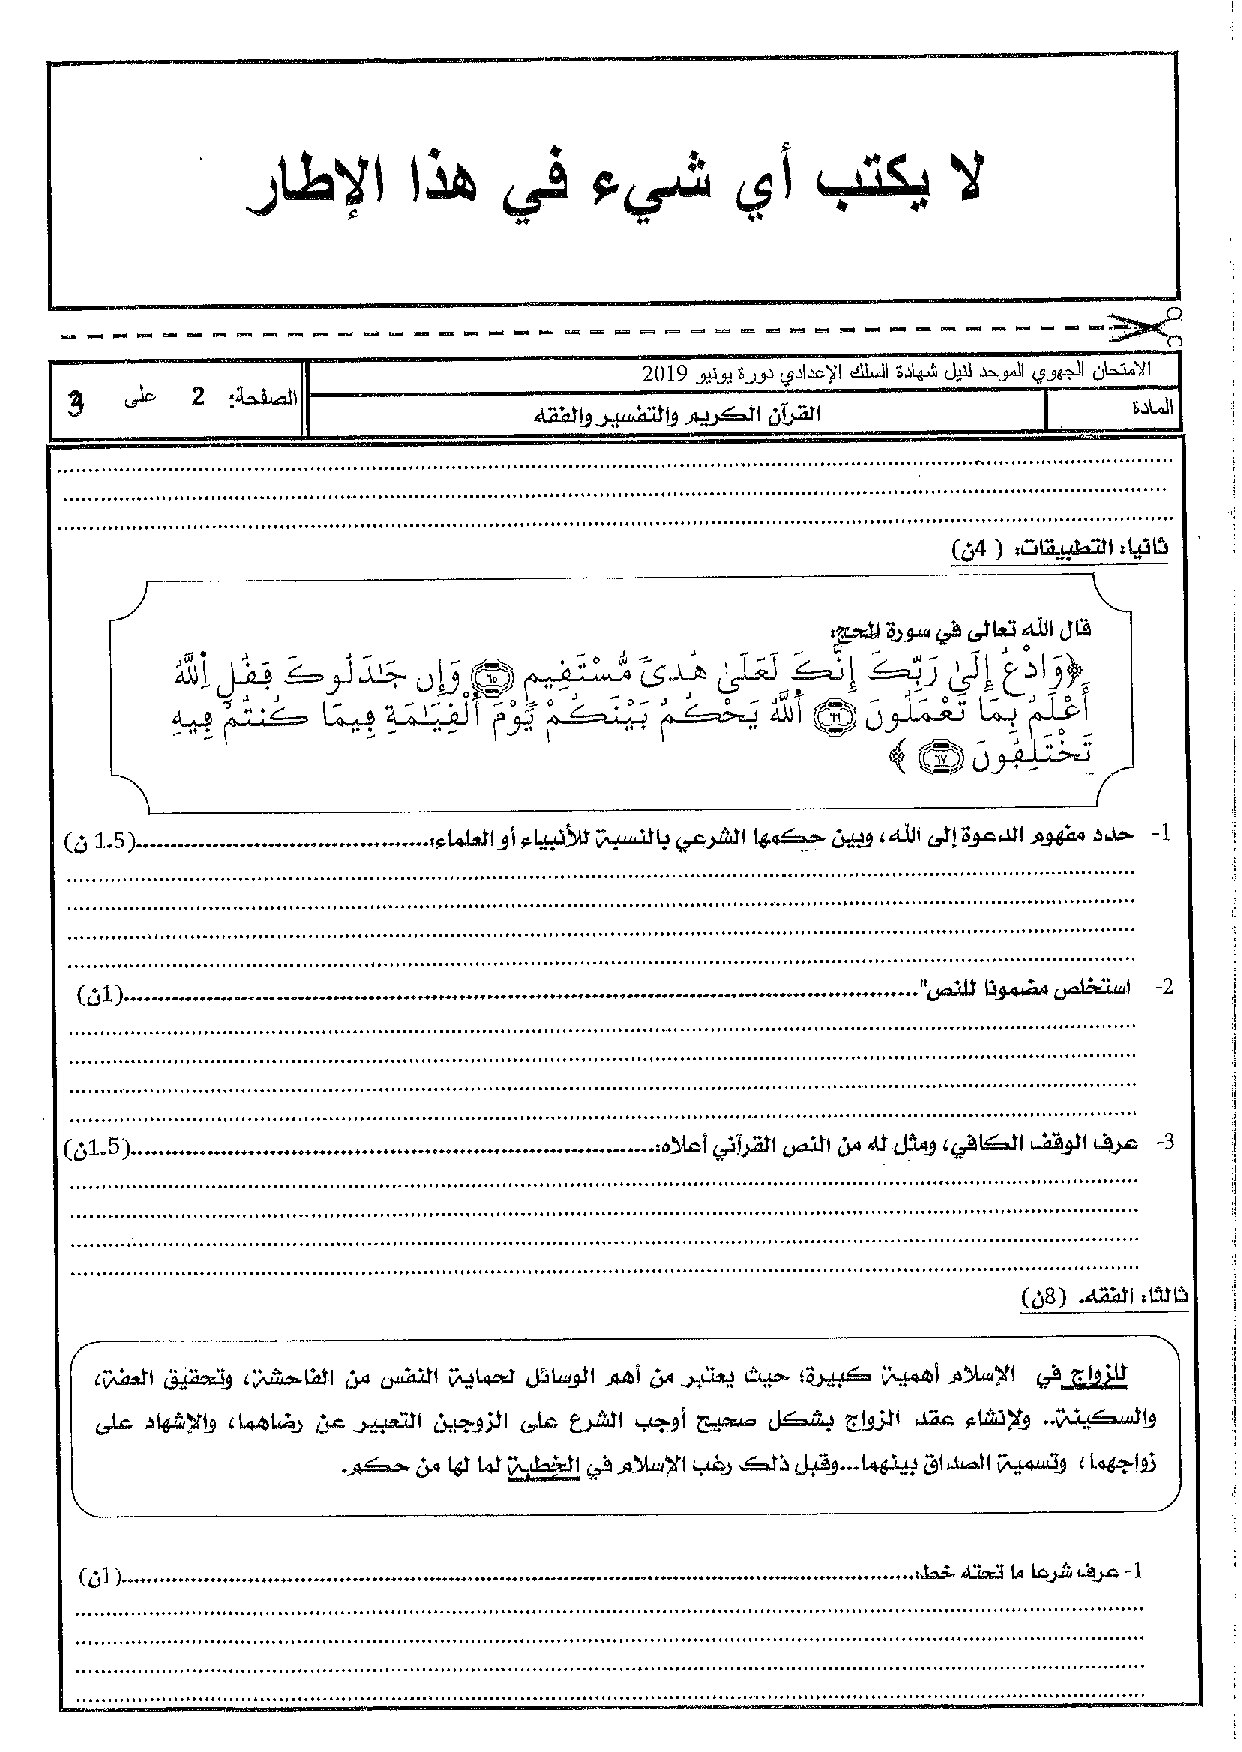 لا يكتب أي شيء في هذا الإطار
الامتحان الجهوي الموحد لنيل شهادة السلك الإعدادي دورة يونيو 2019
المادة
القرآن الكريم والتفسير والفقه
الصفحة: 2 على 3
ثانيا: التطبيقات: ( 4ن)
قال الله تعالى في سورة الحج:
﴿وَادْعُ إِلَىٰ رَبِّكَ إِنَّكَ لَعَلَىٰ هُدىً مُّسْتَقِيمٍ ٦٥ وَإِن جَٰدَلُوكَ فَقُلِ اِللَّهُ
أَعْلَمُ بِمَا تَعْمَلُونَ ٦٦ اَللَّهُ يَحْكُمُ بَيْنَكُمْ يَوْمَ اَلْقِيَٰمَةِ فِيمَا كُنتُمْ فِيهِ
تَخْتَلِفُونَ ٦٧ ﴾
1- حدد مفهوم الدعوة إلى الله، وبين حكمها الشرعي بالنسبة للأنبياء أو العلماء:..........(1.5 ن)
2- استخلص مضمونا للنص"..........(1ن)
3- عرف الوقف الكافي، ومثل له من النص القرآني أعلاه:..........(1.5ن)
ثالثا: الفقه. (8ن)
للزواج في الإسلام أهمية كبيرة؛ حيث يعتبر من أهم الوسائل لحماية النفس من الفاحشة، وتحقيق العفة،
والسكينة.. ولإنشاء عقد الزواج بشكل صحيح أوجب الشرع على الزوجين التعبير عن رضاهما، والإشهاد على
زواجهما، وتسمية الصداق بينهما...وقبل ذلك رغب الإسلام في الخطبة لما لها من حكم.
1- عرف شرعا ما تحته خط:..........(1ن)